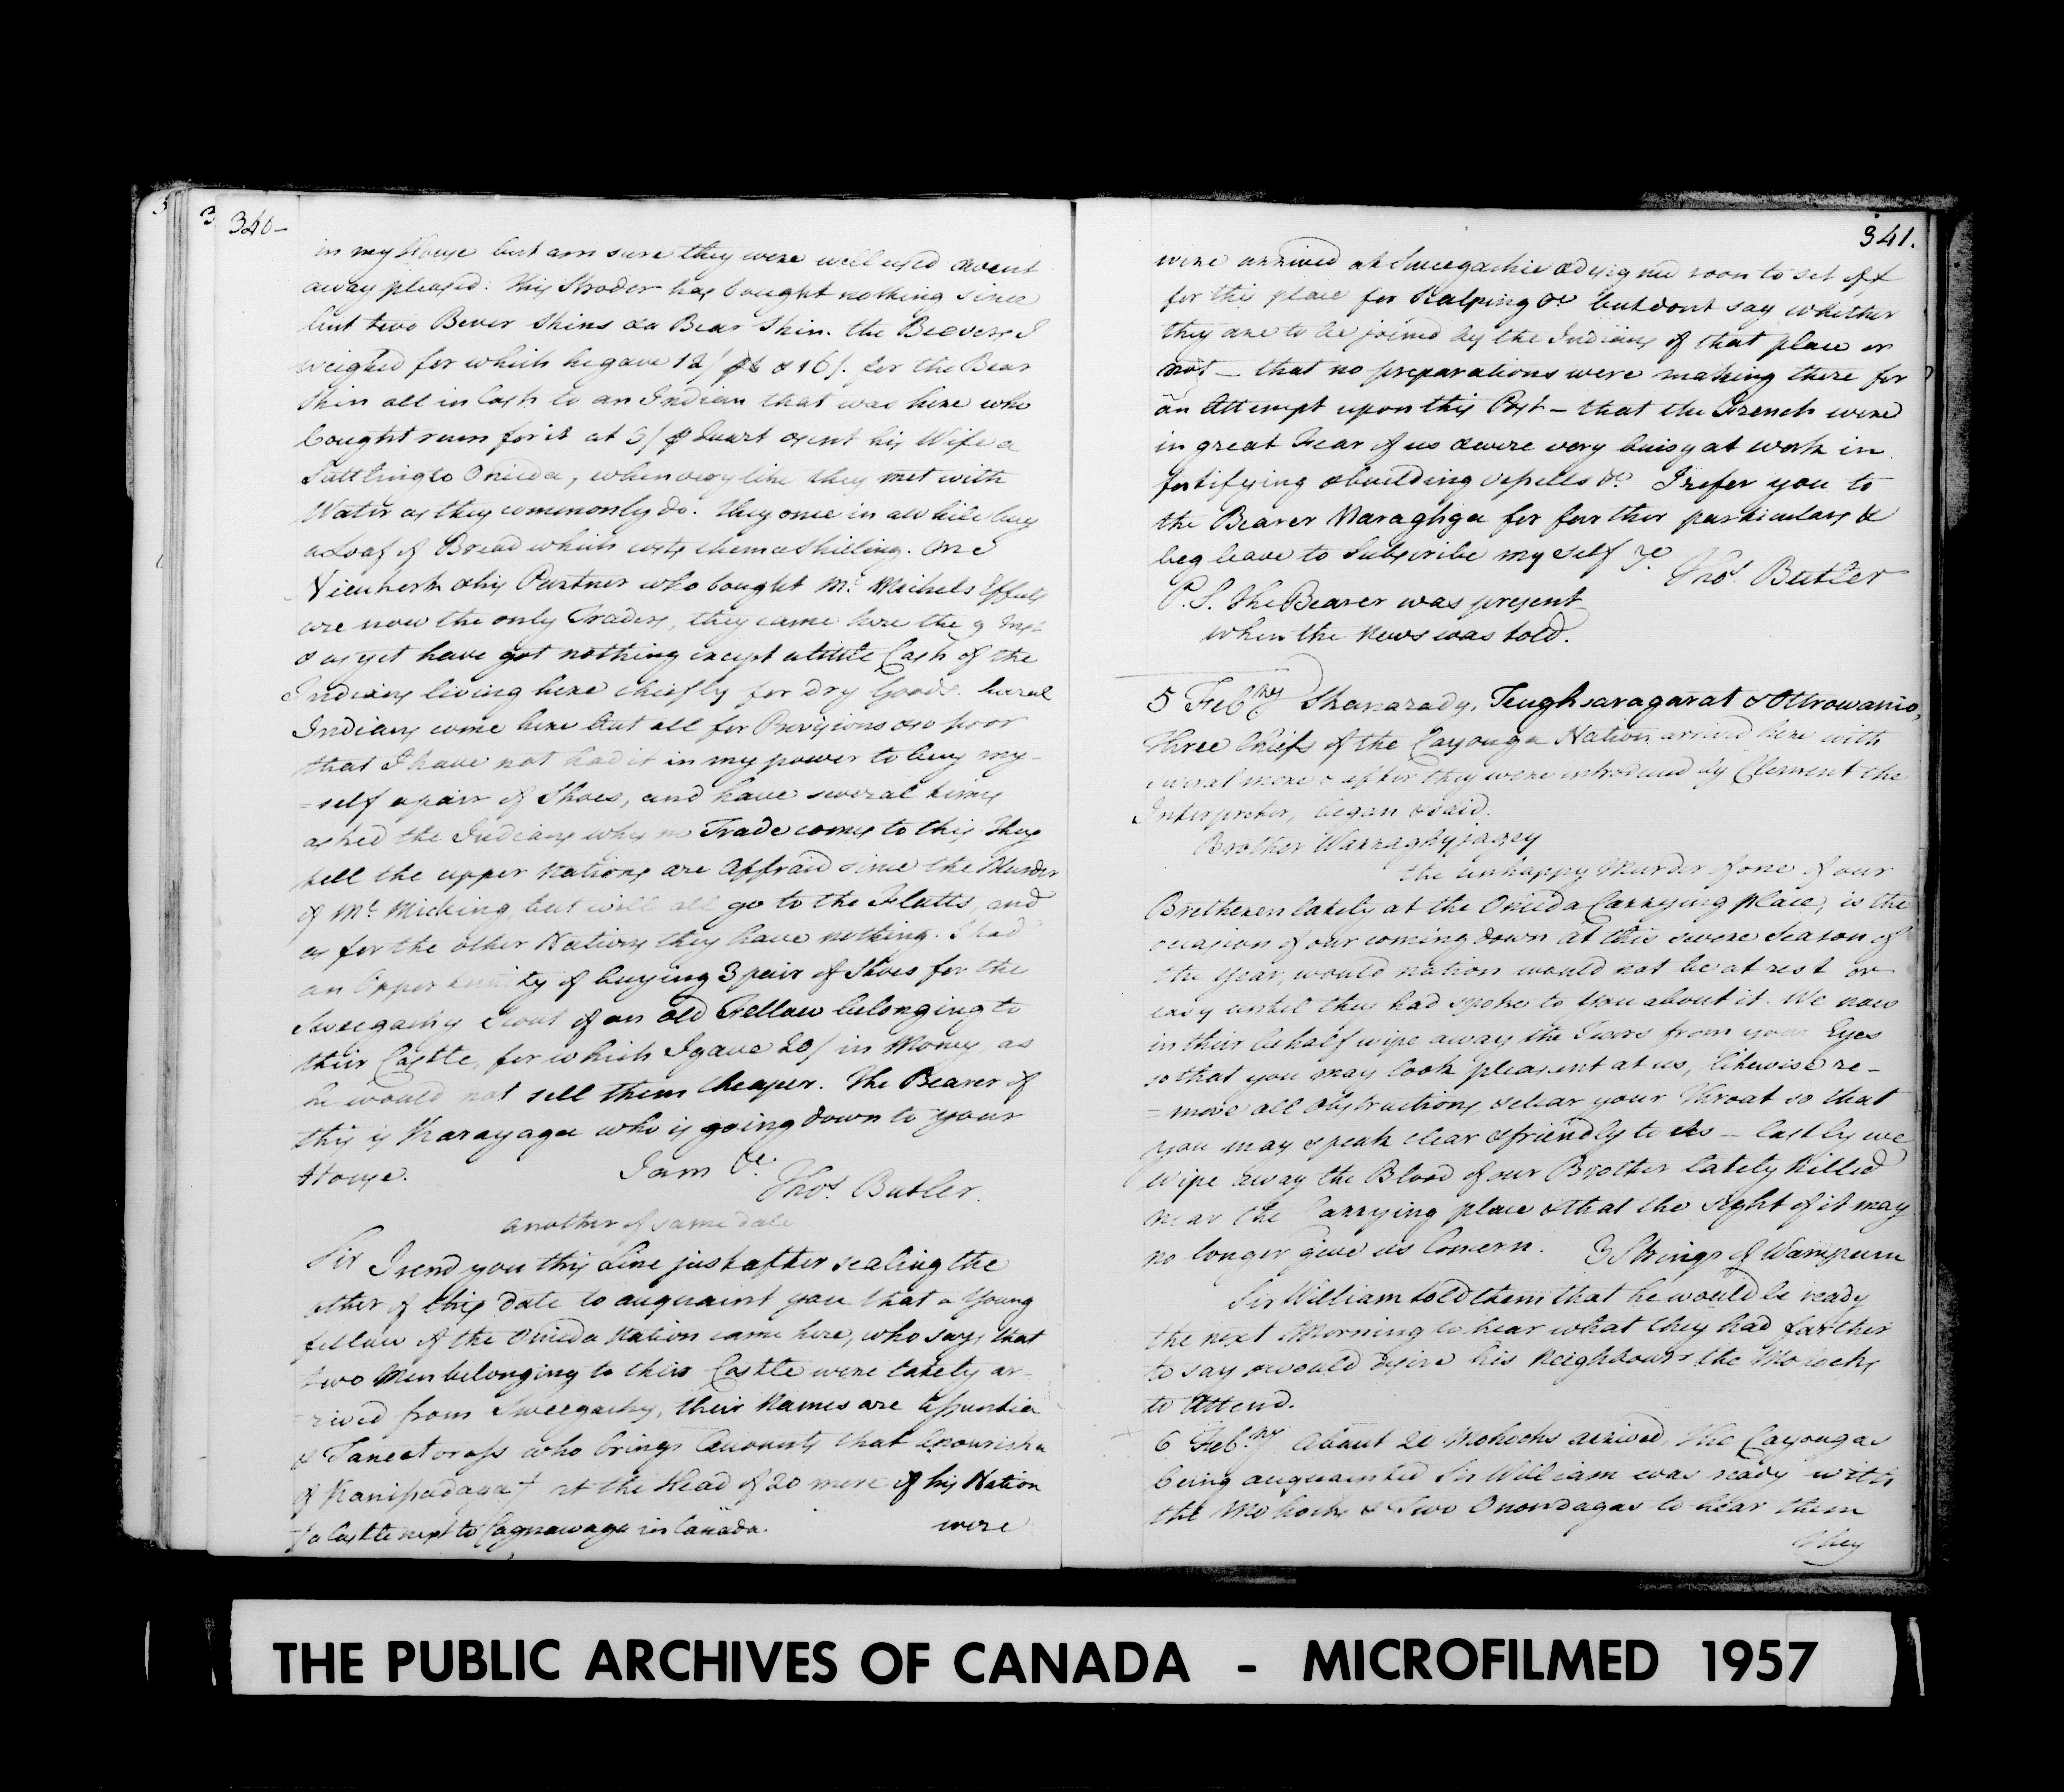 340-
in my House but am sure they were well used & went
away pleased: this Stroder has bought nothing since
but two Bever Skins & a Bear Skin. the Beavers I
weighed for which he gave 12/ & 16/. for the Bear
Skin all in Cash to an Indian that was here who
bought rum for it at 5/ Quart & sent his Wife a
Suttling to Onieda, when very like they met with
Water as they commonly do. they once in a while buy
a Loaf of Bread which costs them a Shilling. One
& his Partner who bought Mr. Effects
are now the only Traders, they came here the 9 Inst
& as yet have got nothing except a little Cash of the
Indians living here chiefly for Dry Goods.
Indians come here but all for Provisions & so poor
that I have not had it in my power to buy my-
=self a pair of Shoes, and have several times
asked the Indians why no Trade comes to this. they
tell the upper Nations are Affraid since the Murder
of Mr. Micking, but will all go to the Flatts, and
as for the other Nations they have nothing. I had
an Opportunity of buying 3 pair of Shoes for the
Sweegachy Scout of an Old Fellow belonging to
their Castle, for which I gave 20/ in Money, as
he would not sell them cheaper. The Bearer of
this is Karayagee who is going down to your
House. I am &c.
Thos. Butler.
another of same date
Sir I send you this Line just after sealing the
other of this date to acquaint you that a Young
fellow of the Onieda Nation came here, who says that
two Men belonging to their Castle were lately ar-
=rived from Sweegachy, their Names are
& who brings Accounts that
of † at the Head of 20 more of his Nation
† a Castle next to Cagnawaga in Canada. were
341.
were arrived at Sweegachie & designed soon to set off
for this place for Scalping &c but dont say whether
they are to be joined by the Indians of that place or
not - that no preparations were making there for
an Attempt upon this Post - that the French were
in great Fear of us & were very buisy at work in
fortifying & building vessells &c. I refer you to
the Bearer for further particulars &
beg leave to Subscribe my self &c.
Thos. Butler
P.S. The Bearer was present
when the News was told.
5 Febry Shanarady, Teughsaragarat & Ottrowanio,
three Chiefs of the Cayouga Nation arrived here with
several more & after they were introduced by Clement the
Interpreter, began & said.
Brother Warraghyjagey
the unhappy Murder of one of our
Bretheren lately at the Onieda Carrying place, is the
occasion of our coming down at this severe Season of
the Year, would nation would not be at rest or
easy until they had spoke to You about it. We now
in their behalf wipe away the Tears from your Eyes
so that you may look pleasent at us, likewise re-
=move all Obstructions, & clear your Throat so that
you may speak clear & friendly to Us - lastly we
wipe away the Blood of our Brother lately killed
near the Carrying place & that the sight of it may
no longer give us Concern. 3 Strings of Wampum
Sir William told them that he would be ready
the next Morning to hear what they had farther
to say & would desire his Neighbours the Mohocks
to Attend.
6 Febry. About 20 Mohocks arrived, the Cayougas
being acquainted Sir William was ready with
the Mohocks & Two Onondagas to hear them
They
THE PUBLIC ARCHIVES OF CANADA - MICROFILMED 1957